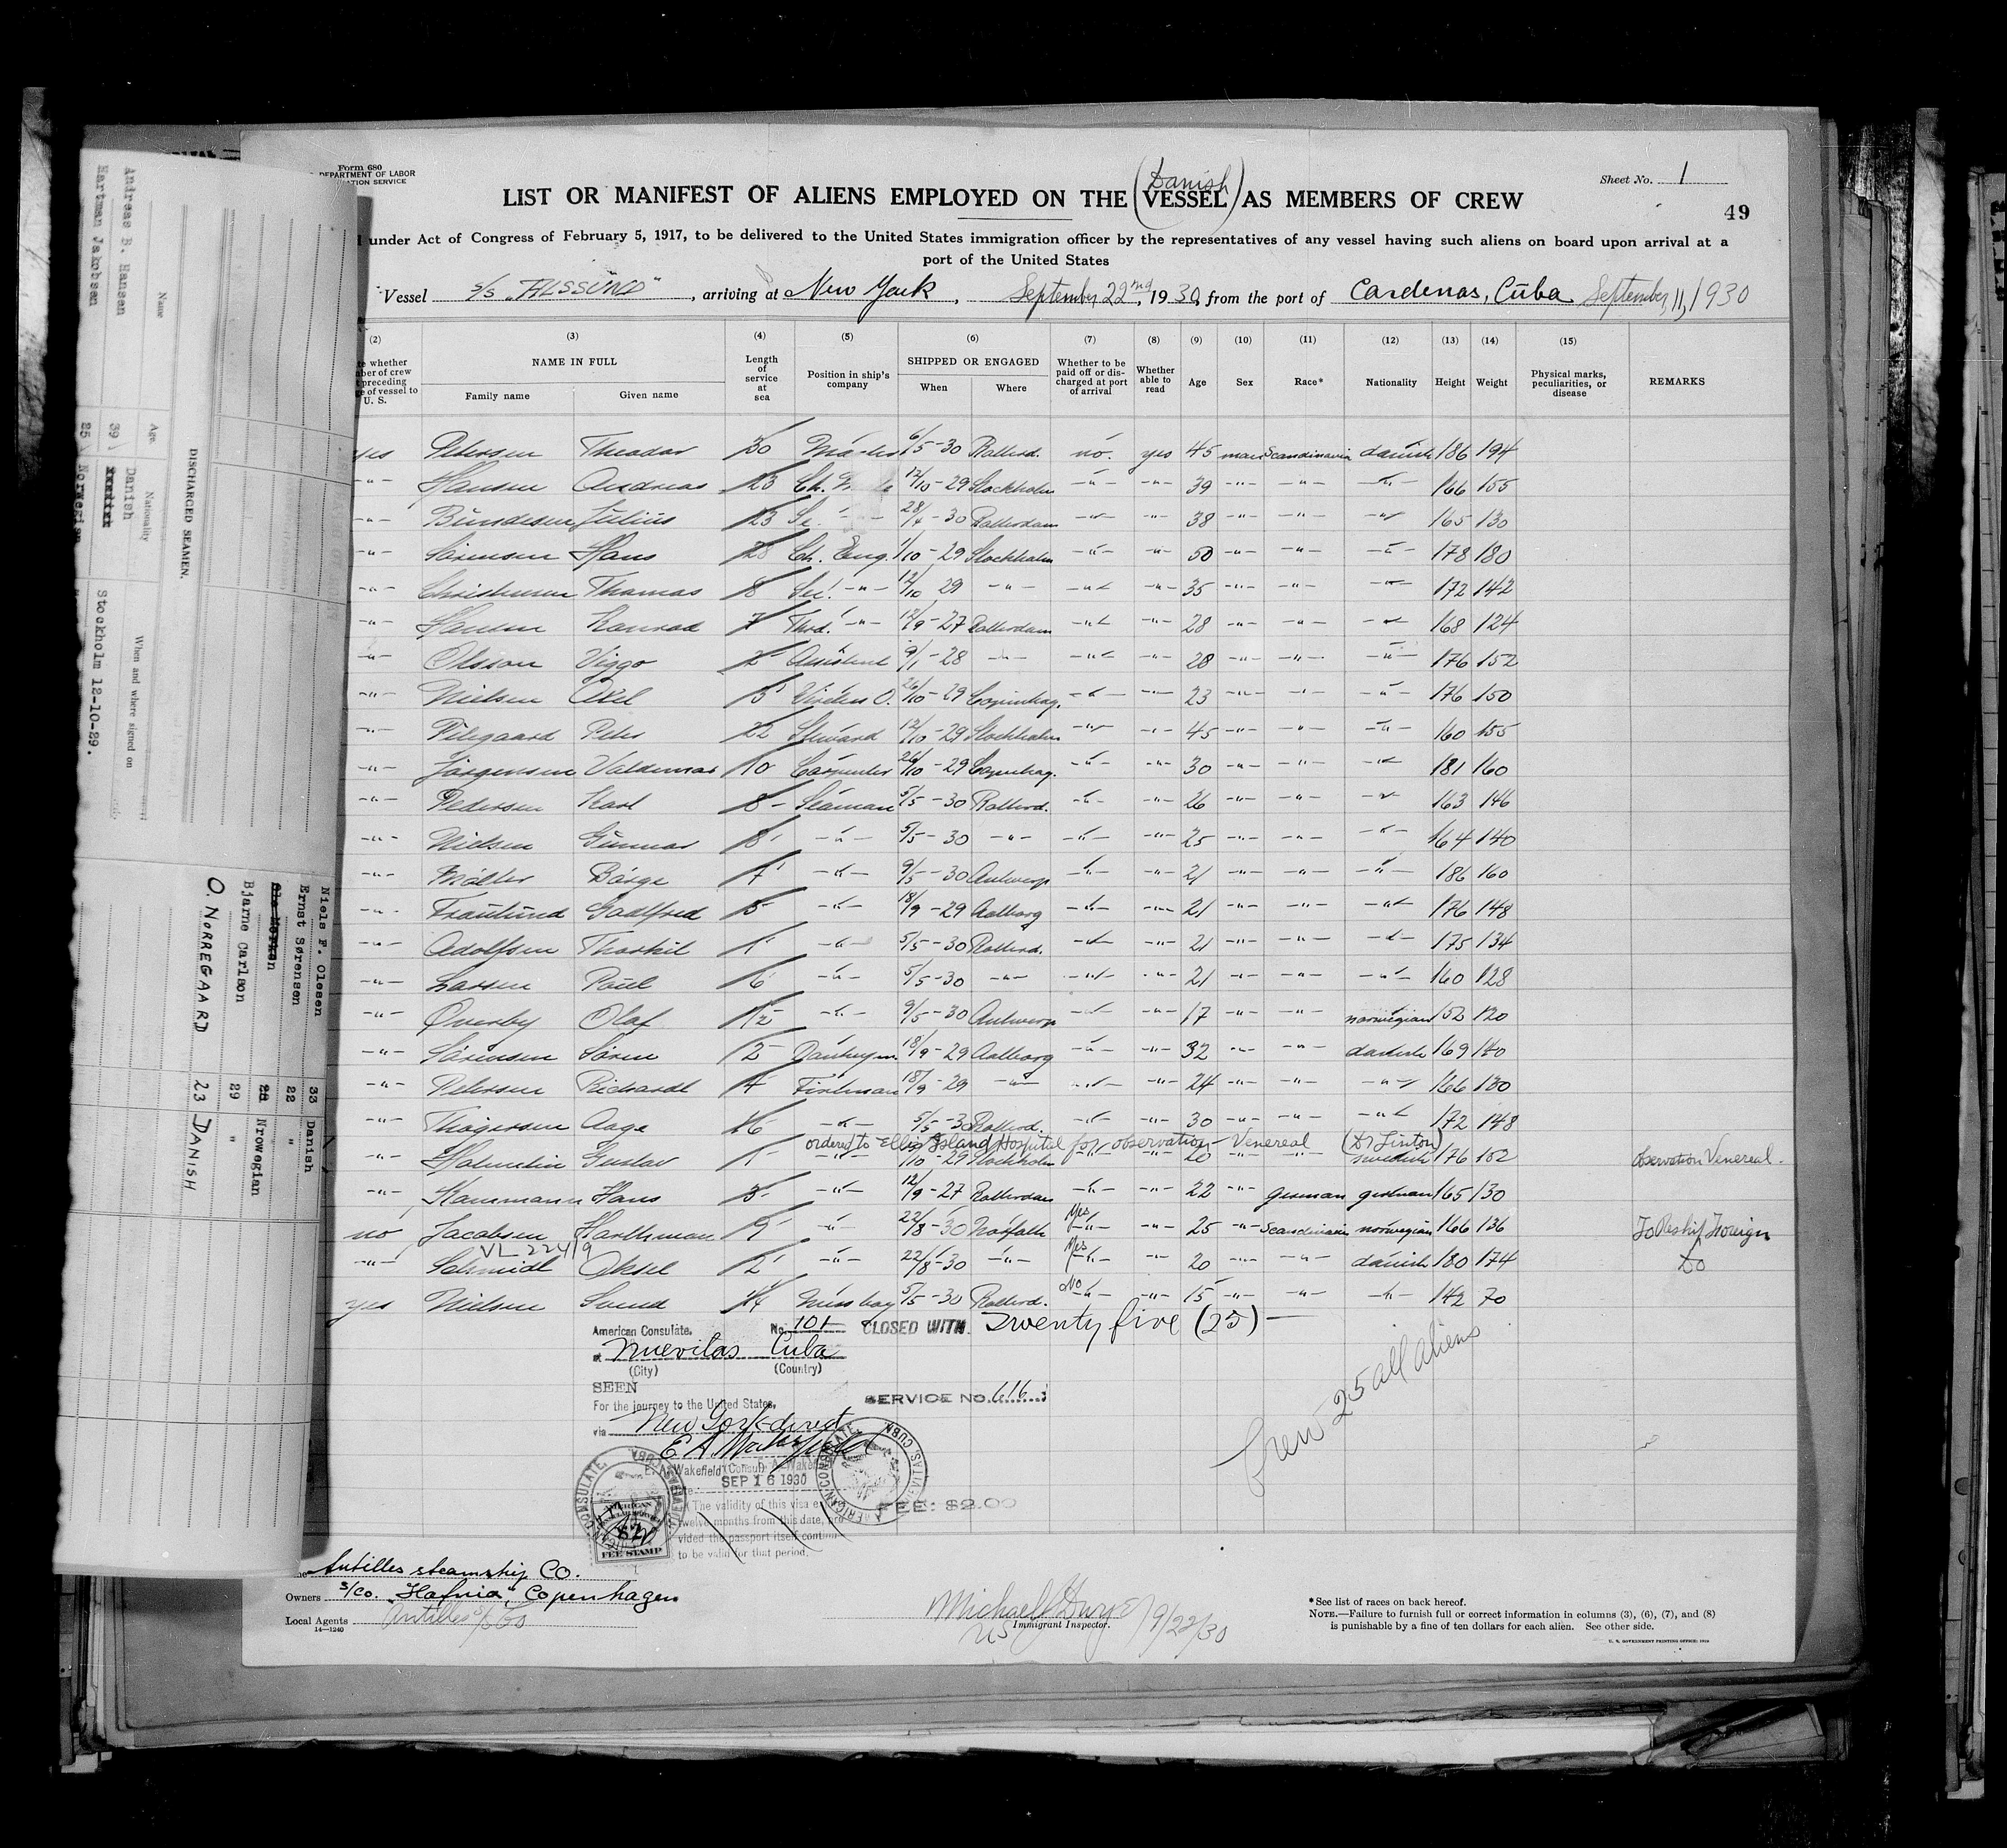 Form 680
DEPARTMENT OF LABOR
Sheet No. 1
LIST OR MANIFEST OF ALIENS EMPLOYED ON THE (Danish VESSEL) AS MEMBERS OF CREW
49
under Act of Congress of February 5, 1917, to be delivered to the United States immigration officer by the representatives of any vessel having such aliens on board upon arrival at a
port of the United States
Vessel S/S , arriving at New York, September 22nd, 1930, from the port of Cardenas, Cuba September, 11, 1930
(2) (3) (4) (5) (6) (7) (8) (9) (10) (11) (12) (13) (14) (15)
NAME IN FULL Family name Given name
Length of service at sea
Position in ship's company
SHIPPED OR ENGAGED When Where
Whether to be paid off or discharged at port of arrival
Whether able to read
Age Sex Race* Nationality Height Weight
Physical marks, peculiarities, or disease
REMARKS
yes Petersen Theodor 30 Master 6/5-30 Rotterd. no. yes 45 man Scandinavia danish 186 194
-"- Hansen Andreas 23 Ch. 12/10-29 Stockholm -"- -"- 39 -"- -"- -"- 166 155
-"- Julius 23 28/4-30 Rotterdam -"- -"- 38 -"- -"- -"- 165 130
-"- Sörensen Hans 28 Ch. Eng. 1/10-29 Stockholm -"- -"- 50 -"- -"- -"- 178 180
-"- Christensen Thomas 8 Sec. -"- 12/10 29 -"- -"- -"- 35 -"- -"- -"- 172 142
-"- Hansen Konrad 7 Thrd. -"- 12/9-27 Rotterdam -"- -"- 28 -"- -"- -"- 168 124
-"- Olsson Viggo 2 Assistent 9/1-28 -"- -"- -"- 28 -"- -"- -"- 176 152
-"- Nielsen Axel 5 Vireless O. 26/10-29 Copenhag. -"- -"- 23 -"- -"- -"- 176 150
-"- Filegaard Peter 22 Steward 12/10-29 Stockholm -"- -"- 45 -"- -"- -"- 160 155
-"- Jörgensen Valdemar 10 Carpenter 26/10-29 Copenhag. -"- -"- 30 -"- -"- -"- 181 160
-"- Pedersen Karl 8 Seaman 5/5-30 Rotterd. -"- -"- 26 -"- -"- -"- 163 146
-"- Nielsen Gunnar 8 -"- 5/5-30 -"- -"- -"- 25 -"- -"- -"- 164 140
-"- Möller Börge 7 -"- 9/5-30 Antwerp -"- -"- 21 -"- -"- -"- 186 160
-"- Fraulund Godtfred 5 -"- 18/9-29 Aalborg -"- -"- 21 -"- -"- -"- 176 148
-"- Adolfsen Thorkil 1 -"- 5/5-30 Rotterd. -"- -"- 21 -"- -"- -"- 175 134
-"- Larsen Poul 6 -"- 5/5-30 -"- -"- -"- 21 -"- -"- -"- 160 128
-"- Överby Olaf 1/2 -"- 9/5-30 Antwerp -"- -"- 17 -"- -"- norwegian 152 120
-"- Sörensen Sören 2 Donkeym. 18/9-29 Aalborg -"- -"- 32 -"- -"- danish 169 140
-"- Petersen Richardt 4 Fireman 18/9-29 -"- -"- -"- 24 -"- -"- -"- 166 130
-"- Thögersen Aage 16 -"- 5/5-30 Rotterd. -"- -"- 30 -"- -"- -"- 172 148
ordered to Ellis Island Hospital for observation - Venereal (Dr Linton)
-"- Gustav 1 -"- /10-29 Stockholm -"- -"- 20 -"- -"- swedish 176 152 observation Venereal.
-"- Hansmann Hans 3 -"- 12/9-27 Rotterdam -"- -"- 22 -"- german german 165 130
no Jacobsen Harthman 9 -"- 22/8-30 Norfolk Yes -"- 25 -"- Scandinavia norwegian 166 136 To Reship Foreign
VL 22419
-"- Schmidt Aksel 2 -"- 22/8-30 -"- Yes -"- 20 -"- -"- danish 180 174 Do
yes Nielsen Svend 1/4 Messboy 5/5-30 Rotterd. No -"- 15 -"- -"- -"- 142 70
CLOSED WITH Twenty five (25)
American Consulate. No. 101
at Nuevitas Cuba
(City) (Country)
SEEN
For the journey to the United States,
via New York direct
SERVICE NO. 616
E. A. Wakefield
E. A. Wakefield, Consul
SEP 16 1930
The validity of this visa e
twelve months from this date, pro
vided the passport itself contin
to be valid for that period.
FEE: $2.00
AMERICAN CONSULATE, NUEVITAS, CUBA
FEE STAMP
Crew 25 all aliens
Antilles steamship CO.
Owners S/Co. "Hafnia", Copenhagen
Local Agents Antilles S/S Co
14—1240
Michael Dwyer 9/22/30
US Immigrant Inspector.
*See list of races on back hereof.
NOTE.—Failure to furnish full or correct information in columns (3), (6), (7), and (8)
is punishable by a fine of ten dollars for each alien. See other side.
U. S. GOVERNMENT PRINTING OFFICE: 1929
DISCHARGED SEAMEN.
Name Age. Nationality When and where signed on
Andreas B. Hansen 39 Danish Stockholm 12-10-29.
Hartman Jakobsen 25 Norwegian
Niels P. Olesen 33 Danish
Ernst Sørensen 22 "
Nrowegian
Bjarne Carlson 29 "
O. NORREGAARD 23 DANISH